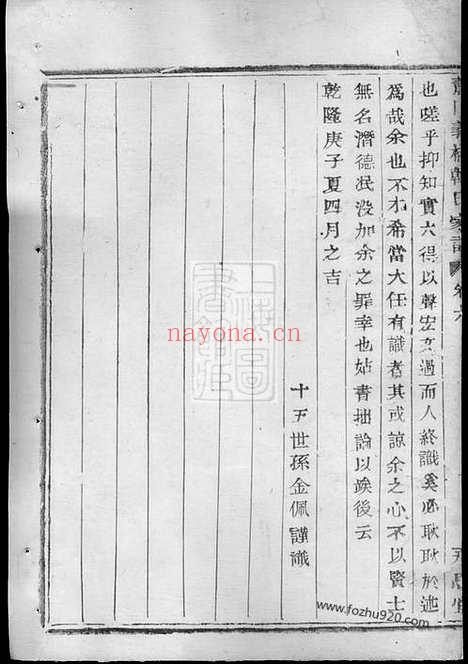 蕭山義橋韓氏家譜 卷六
也嗟乎抑知實大得以聲宏文過而人終識奚必耿耿於述
為哉余也不才希當大任有識者其或諒余之心不以賢士
無名潛德泯沒加余之罪幸也姑書拙論以竢後云
乾隆庚子夏四月之吉
十五世孫金佩謹識
上海圖書館藏
nayona.cn
www.fozhu920.com